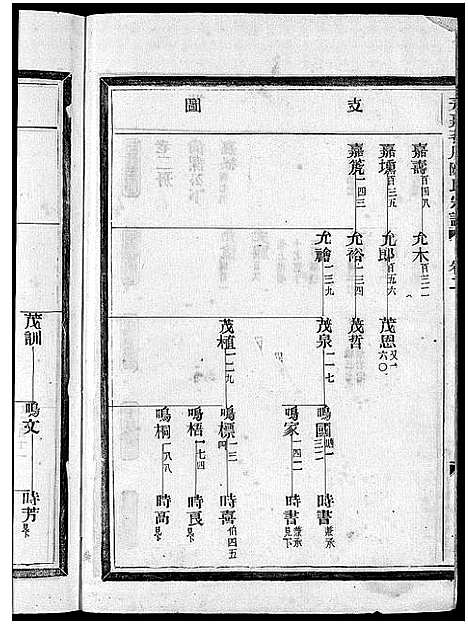 支圖
嘉壽 百四八
允木 百三二
嘉壎 百三五
允郎 百五六
茂恩 又一六〇
嘉箎 一四三
允裕 一三四
茂哲
允禬 一三九
茂泉 一一七
鳴國
時書 兼承
鳴家 一四二
時書 兼承見下
茂植 一二九
鳴標 一三四
時喜 伯四五
鳴梧 一七四
時良 見下
鳴桐 一八八
時高 見下
茂訓
鳴文
時芳 見下